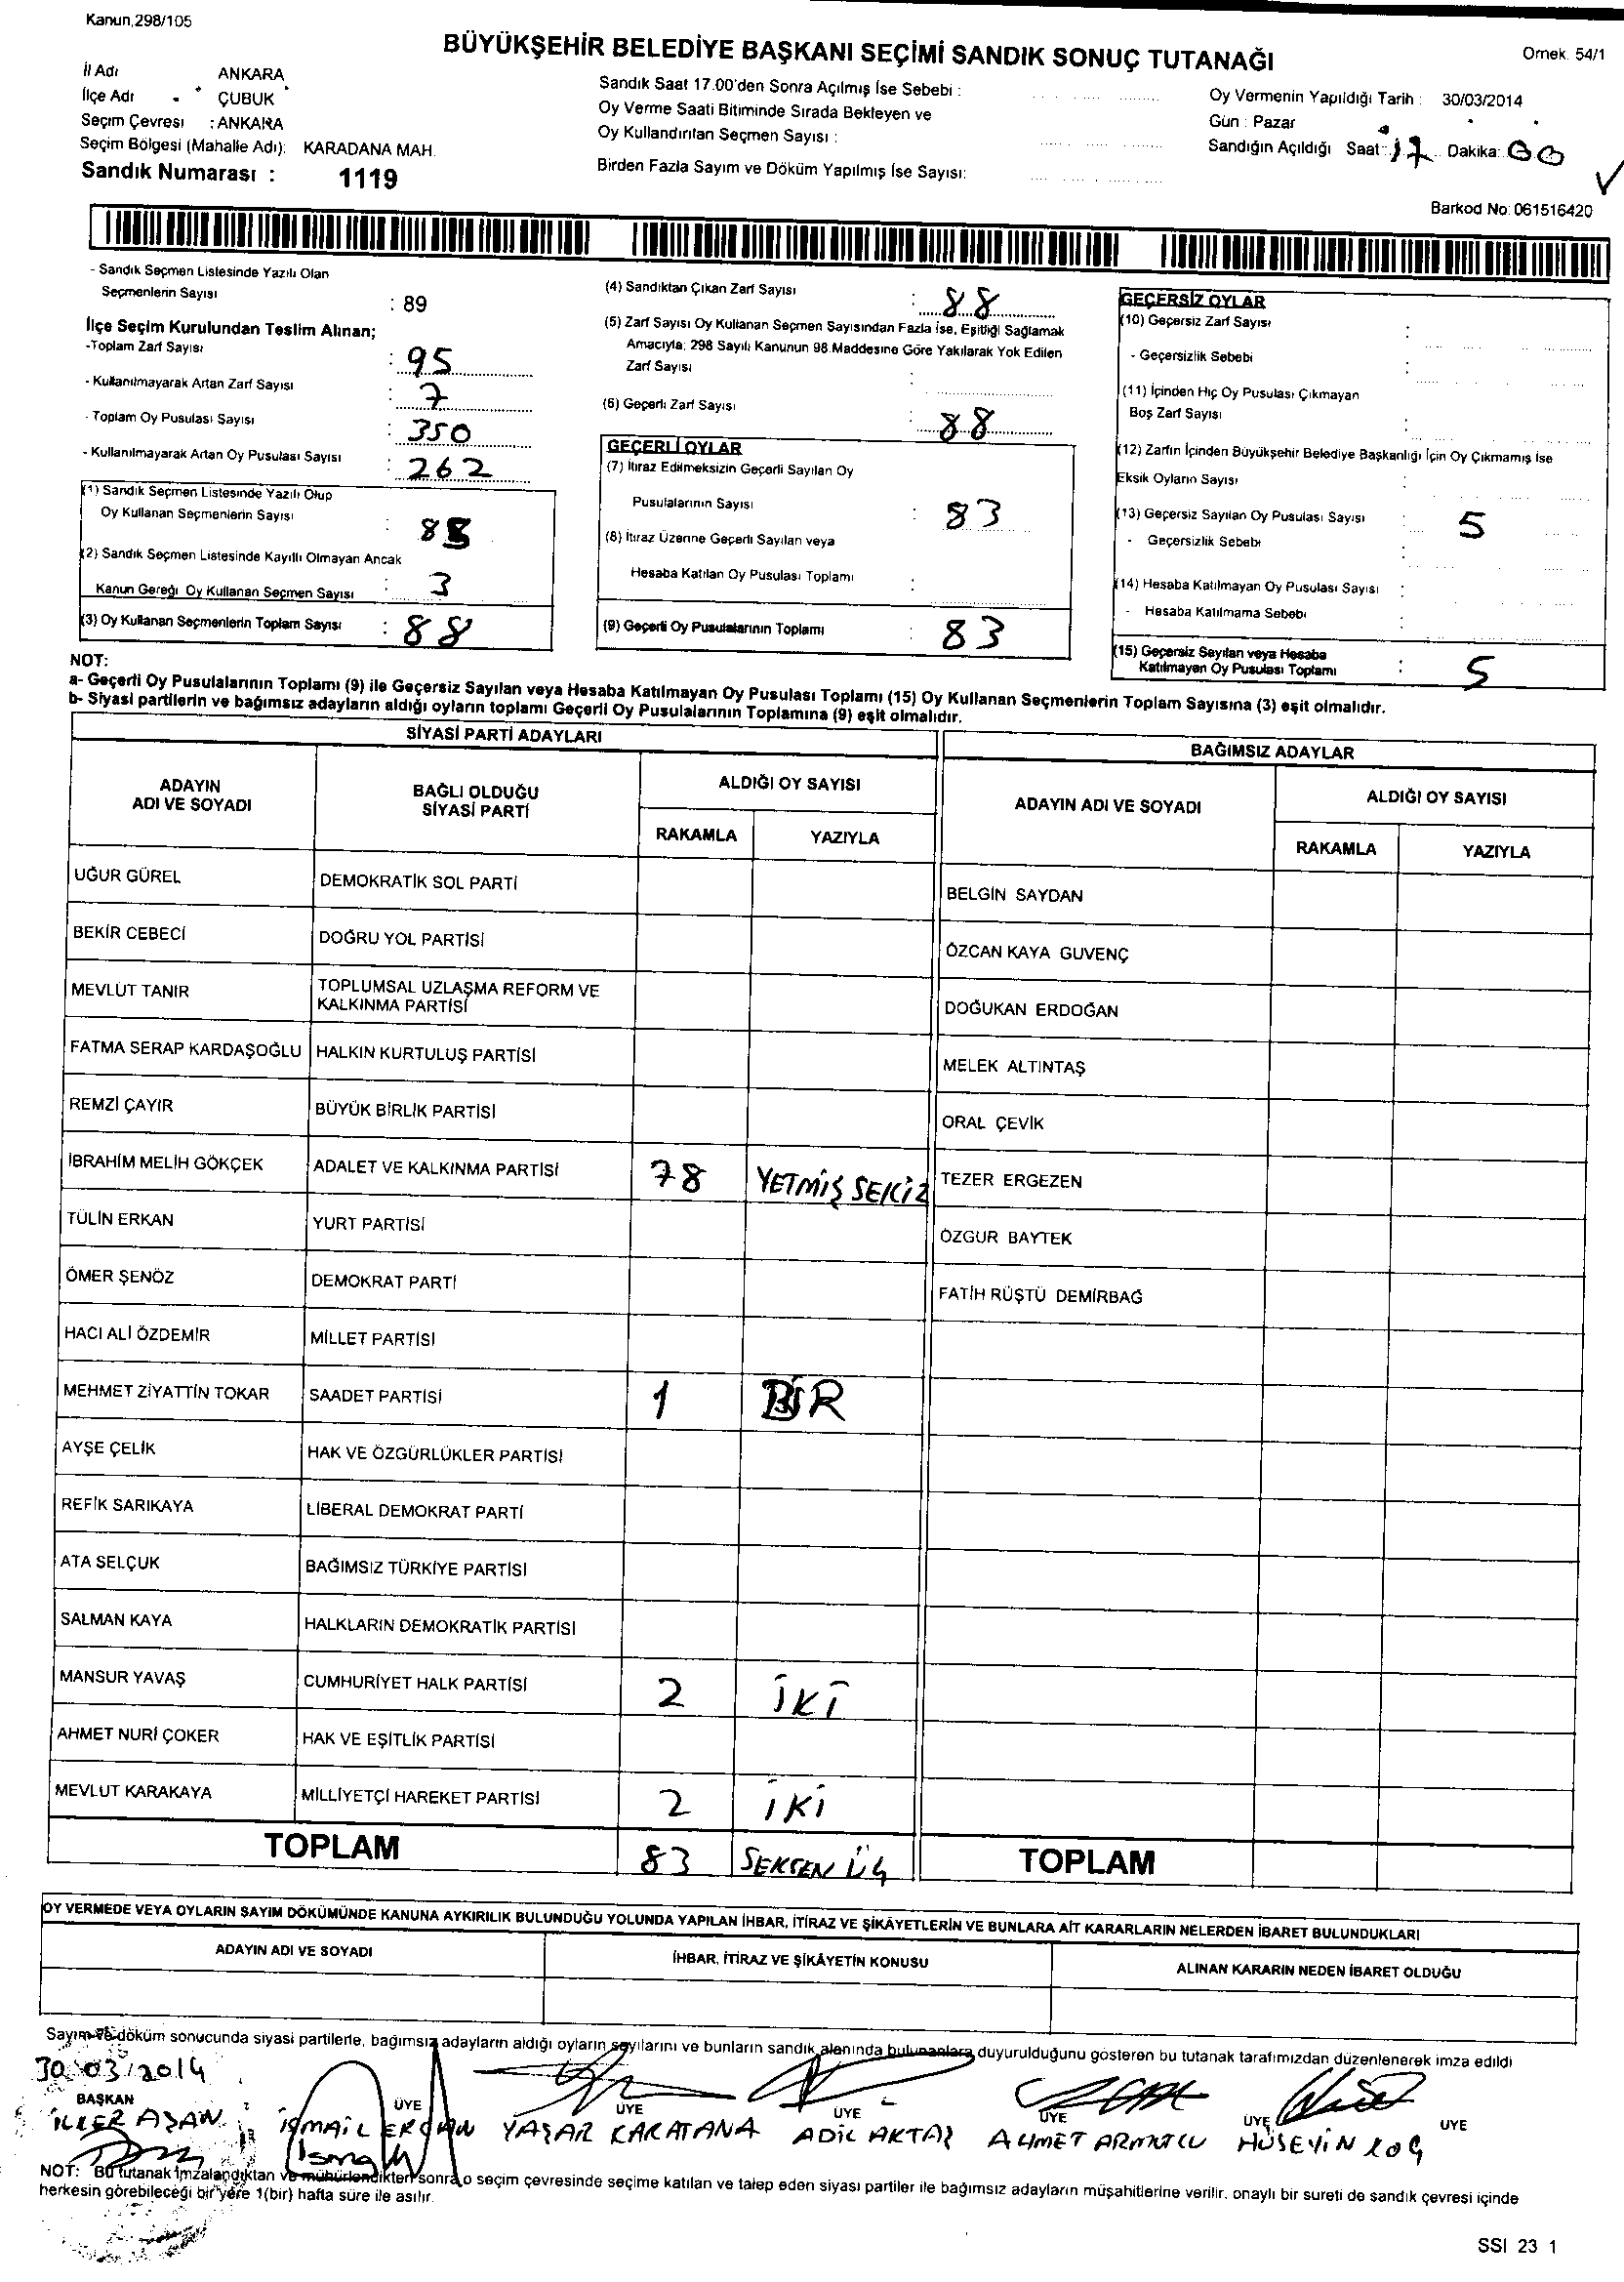 Kanun,298/105
BÜYÜKŞEHİR BELEDİYE BAŞKANI SEÇİMİ SANDIK SONUÇ TUTANAĞI
Ornek. 54/1
İl Adı ANKARA
İlçe Adı ÇUBUK
Seçim Çevresi : ANKARA
Seçim Bölgesi (Mahalle Adı): KARADANA MAH.
Sandık Numarası : 1119
Sandık Saat 17.00'den Sonra Açılmış İse Sebebi :
Oy Verme Saati Bitiminde Sırada Bekleyen ve
Oy Kullandırılan Seçmen Sayısı :
Birden Fazla Sayım ve Döküm Yapılmış İse Sayısı:
Oy Vermenin Yapıldığı Tarih : 30/03/2014
Gün : Pazar
Sandığın Açıldığı Saat: 17 Dakika: 00
Barkod No: 061516420
- Sandık Seçmen Listesinde Yazılı Olan
Seçmenlerin Sayısı : 89
İlçe Seçim Kurulundan Teslim Alınan;
-Toplam Zarf Sayısı : 95
- Kullanılmayarak Artan Zarf Sayısı : 7
- Toplam Oy Pusulası Sayısı : 350
- Kullanılmayarak Artan Oy Pusulası Sayısı : 262
(1) Sandık Seçmen Listesinde Yazılı Olup
Oy Kullanan Seçmenlerin Sayısı :
(2) Sandık Seçmen Listesinde Kayıtlı Olmayan Ancak
Kanun Gereği Oy Kullanan Seçmen Sayısı : 3
(3) Oy Kullanan Seçmenlerin Toplam Sayısı : 88
(4) Sandıktan Çıkan Zarf Sayısı : 88
(5) Zarf Sayısı Oy Kullanan Seçmen Sayısından Fazla İse, Eşitliği Sağlamak
Amacıyla; 298 Sayılı Kanunun 98.Maddesine Göre Yakılarak Yok Edilen
Zarf Sayısı :
(6) Geçerli Zarf Sayısı : 88
GEÇERLİ OYLAR
(7) İtiraz Edilmeksizin Geçerli Sayılan Oy
Pusulalarının Sayısı : 83
(8) İtiraz Üzerine Geçerli Sayılan veya
Hesaba Katılan Oy Pusulası Toplamı :
(9) Geçerli Oy Pusulalarının Toplamı : 83
GEÇERSİZ OYLAR
(10) Geçersiz Zarf Sayısı :
- Geçersizlik Sebebi :
(11) İçinden Hiç Oy Pusulası Çıkmayan
Boş Zarf Sayısı :
(12) Zarfın İçinden Büyükşehir Belediye Başkanlığı İçin Oy Çıkmamış İse
Eksik Oyların Sayısı :
(13) Geçersiz Sayılan Oy Pusulası Sayısı : 5
- Geçersizlik Sebebi :
(14) Hesaba Katılmayan Oy Pusulası Sayısı :
- Hesaba Katılmama Sebebi :
(15) Geçersiz Sayılan veya Hesaba
Katılmayan Oy Pusulası Toplamı : 5
NOT:
a- Geçerli Oy Pusulalarının Toplamı (9) ile Geçersiz Sayılan veya Hesaba Katılmayan Oy Pusulası Toplamı (15) Oy Kullanan Seçmenlerin Toplam Sayısına (3) eşit olmalıdır.
b- Siyasi partilerin ve bağımsız adayların aldığı oyların toplamı Geçerli Oy Pusulalarının Toplamına (9) eşit olmalıdır.
SİYASİ PARTİ ADAYLARI BAĞIMSIZ ADAYLAR
ADAYIN ADI VE SOYADI BAĞLI OLDUĞU SİYASİ PARTİ ALDIĞI OY SAYISI ADAYIN ADI VE SOYADI ALDIĞI OY SAYISI
RAKAMLA YAZIYLA RAKAMLA YAZIYLA
UĞUR GÜREL DEMOKRATİK SOL PARTİ BELGİN SAYDAN
BEKİR CEBECİ DOĞRU YOL PARTİSİ ÖZCAN KAYA GUVENÇ
MEVLÜT TANIR TOPLUMSAL UZLAŞMA REFORM VE KALKINMA PARTİSİ DOĞUKAN ERDOĞAN
FATMA SERAP KARDAŞOĞLU HALKIN KURTULUŞ PARTİSİ MELEK ALTINTAŞ
REMZİ ÇAYIR BÜYÜK BİRLİK PARTİSİ ORAL ÇEVİK
İBRAHİM MELİH GÖKÇEK ADALET VE KALKINMA PARTİSİ 78 YETMİŞ SEKİZ TEZER ERGEZEN
TÜLİN ERKAN YURT PARTİSİ ÖZGUR BAYTEK
ÖMER ŞENÖZ DEMOKRAT PARTİ FATİH RÜŞTÜ DEMİRBAĞ
HACI ALİ ÖZDEMİR MİLLET PARTİSİ
MEHMET ZİYATTİN TOKAR SAADET PARTİSİ 1 BİR
AYŞE ÇELİK HAK VE ÖZGÜRLÜKLER PARTİSİ
REFİK SARIKAYA LİBERAL DEMOKRAT PARTİ
ATA SELÇUK BAĞIMSIZ TÜRKİYE PARTİSİ
SALMAN KAYA HALKLARIN DEMOKRATİK PARTİSİ
MANSUR YAVAŞ CUMHURİYET HALK PARTİSİ 2 İKİ
AHMET NURİ ÇOKER HAK VE EŞİTLİK PARTİSİ
MEVLUT KARAKAYA MİLLİYETÇİ HAREKET PARTİSİ 2 İKİ
TOPLAM 83 SEKSEN ÜÇ TOPLAM
OY VERMEDE VEYA OYLARIN SAYIM DÖKÜMÜNDE KANUNA AYKIRILIK BULUNDUĞU YOLUNDA YAPILAN İHBAR, İTİRAZ VE ŞİKÂYETLERİN VE BUNLARA AİT KARARLARIN NELERDEN İBARET BULUNDUKLARI
ADAYIN ADI VE SOYADI İHBAR, İTİRAZ VE ŞİKÂYETİN KONUSU ALINAN KARARIN NEDEN İBARET OLDUĞU
Sayım ve döküm sonucunda siyasi partilerle, bağımsız adayların aldığı oyların sayılarını ve bunların sandık alanında bulunanlara duyurulduğunu gösteren bu tutanak tarafımızdan düzenlenerek imza edildi
30.03.2014
BAŞKAN ÜYE ÜYE ÜYE ÜYE ÜYE ÜYE
İLKER İSMAİL ERCAN YAŞAR KARATANA ADİL AKTAŞ AHMET ARMUTLU HÜSEYİN KOÇ
NOT: Bu tutanak imzalandıktan ve mühürlendikten sonra o seçim çevresinde seçime katılan ve talep eden siyasi partiler ile bağımsız adayların müşahitlerine verilir, onaylı bir sureti de sandık çevresi içinde
herkesin görebileceği bir yere 1(bir) hafta süre ile asılır.
SSI 23 1